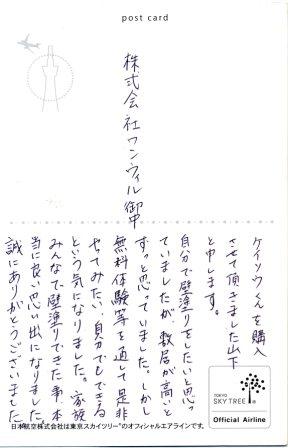 post card
株式会社ワンウィル御中
ケイソウくんを購入
させて頂きました山下
と申します。
自分で壁塗りをしたいと思っ
ていましたが敷居が高いと
ずっと思っていました。しかし
無料体験等を通して是非
やってみたい、自分でもできる
という気になりました。家族
みんなで壁塗りできた事、本
当に良い思い出になりました。
誠にありがとうございました。
TOKYO
SKY TREE®
Official Airline
日本航空株式会社は東京スカイツリー®のオフィシャルエアラインです。